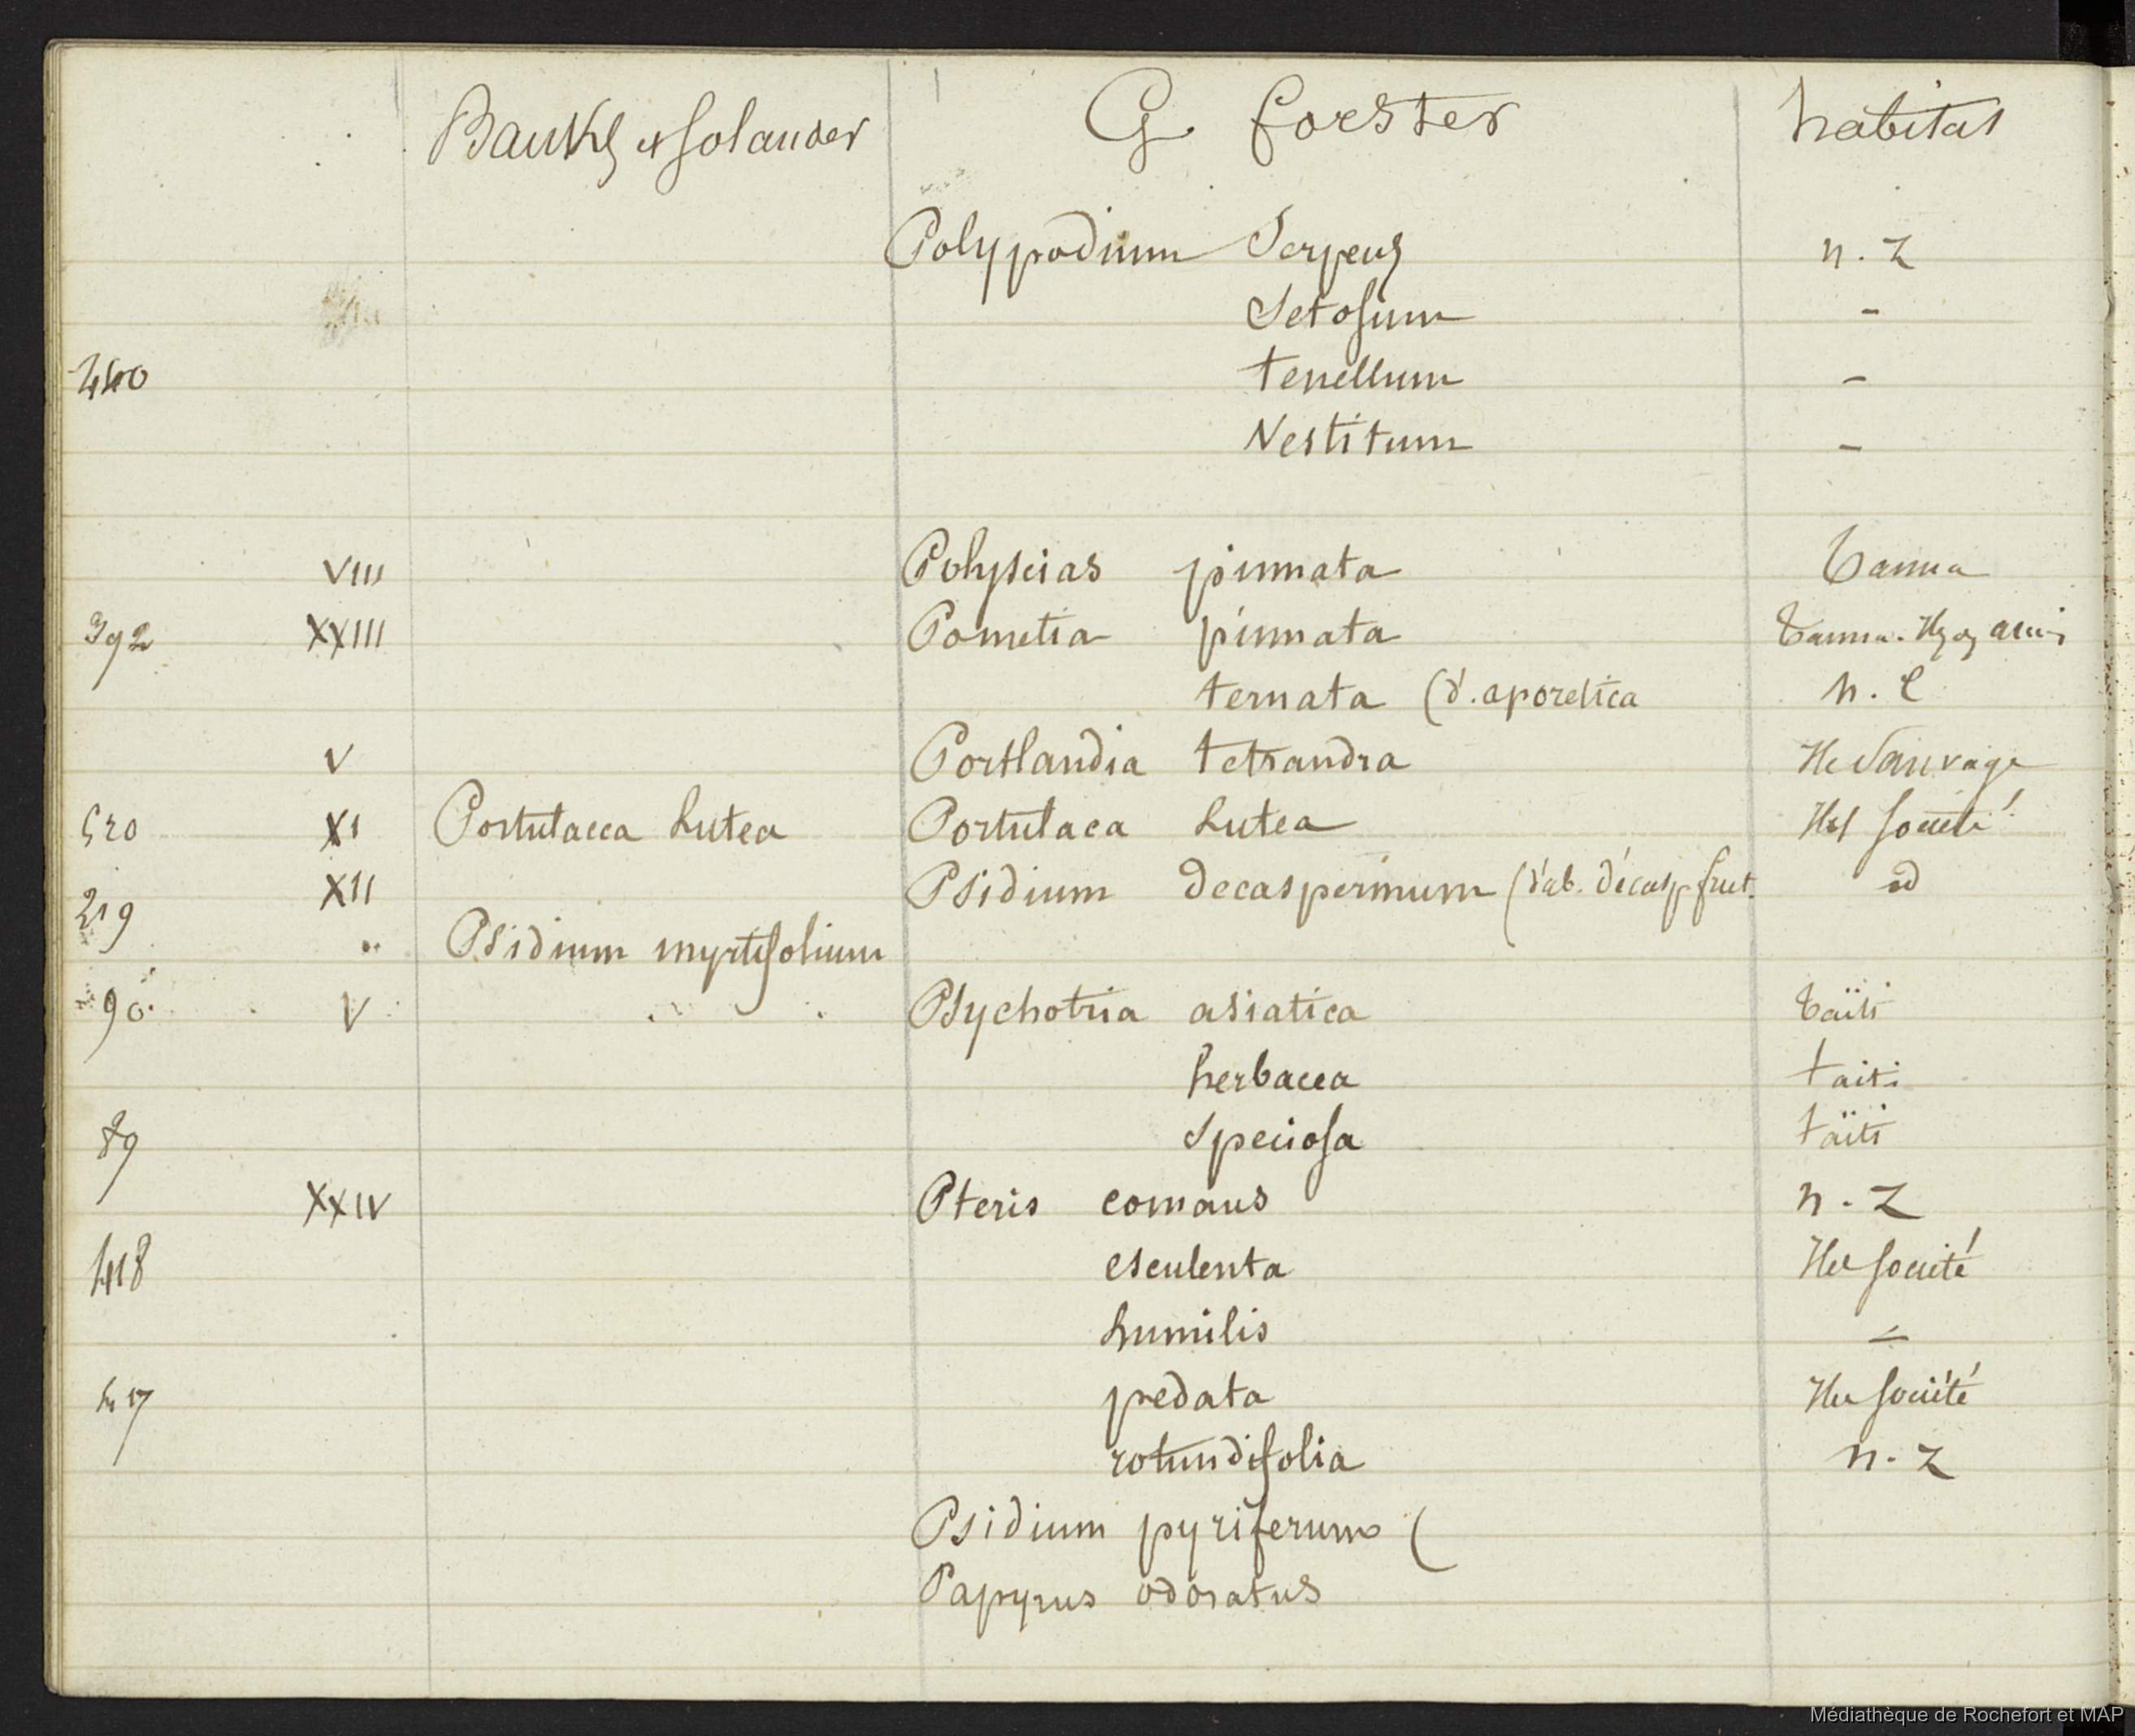 Banks et Solander G Forster habitat
Polypodium Serpens n. Z
Setosum -
440 tenellum -
Vestitum -
VIII Polyscias pinnata Tanna
392 XXIII Pometia pinnata Tanna. amis
ternata (d. aporetica n. C
V Portlandia tetrandra Ile Sauvage
520 XI Portulacca Lutea Portulaca Lutea Iles Société
XII Psidium decaspermum (dab. décasp frut. id
219 .. Psidium myrtifolium
90 V Psychotria asiatica Taïti
herbacea taiti
89 Speciosa taïti
XXIV Pteris comans n. Z
418 esculenta Iles Société
humilis -
417 pedata Iles Société
rotundifolia n. Z
Psidium pyriferum (
Papyrus odoratus
Médiathèque de Rochefort et MAP